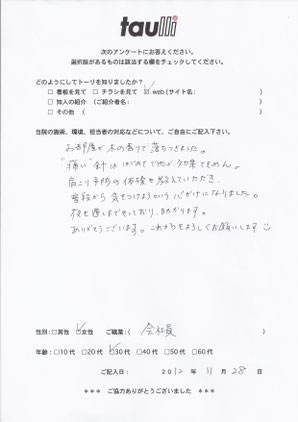 taulli
次のアンケートにお答えください。
選択肢があるものは該当する欄をチェックしてください。
どのようにしてトーリを知りましたか?
□看板を見て □チラシを見て ☑web(サイト名: )
□知人の紹介 (ご紹介者名: )
□その他( )
当院の施術、環境、担当者の対応などについて、ご自由にご記入下さい。
お部屋が木の香りで落ちつきました。
"痛い"針ははじめてで
肩こり予防の体操も教えていただき、
普段から気をつけようという心がけになりました。
夜も遅くまでやっており、助かります。
ありがとうございます。これからもよろしくお願いします
性別:□男性 ☑女性 ご職業:( 会社員 )
年齢:□10代 □20代 ☑30代 □40代 □50代 □60代
ご記入日: 2012年 11月 28日
*** ご協力ありがとうございました ***